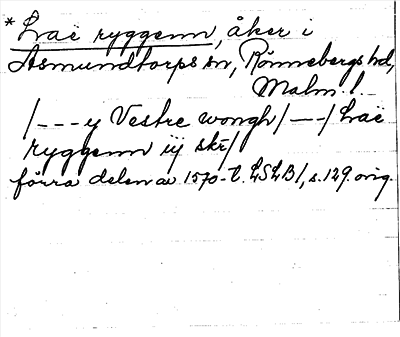 * Laë ryggenn, åker i
Asmundtorps sn, Rönnebergs hd,
Malm. l.
/---y Vestre wongh/---/ Laë
ryggenn iij skr/
förra delen av 1570-t. LSLB1, s. 129. orig.